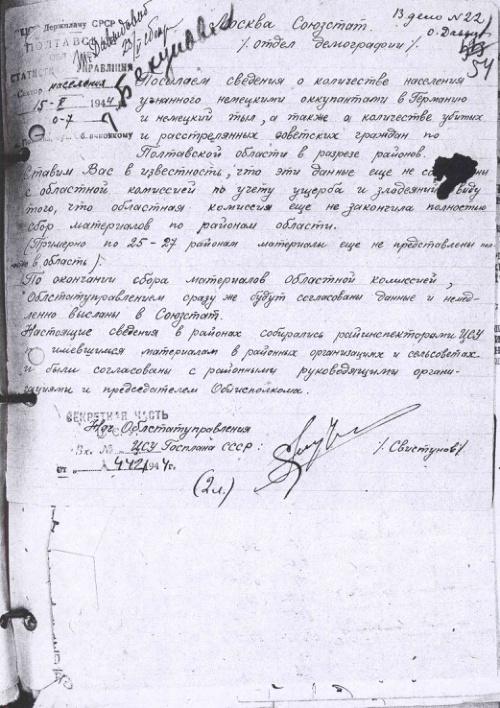 Москва Союзстат.
/отдел демографии/
В дело №22
54
Держплану СРСР
ПОЛТАВСЬ
СТАТИСТИ УПРАВЛІННЯ
Сектор населения
15-V 1944
0-7
Посылаем сведения о количестве населения
угнанного немецкими оккупантами в Германию
и немецкий тыл, а также о количестве убитых
и расстрелянных советских граждан по
Полтавской области в разрезе районов.
Ставим Вас в известность, что эти данные еще не
с областной комиссией по учету ущерба и злодеяний ввиду
того, что областная комиссия еще не закончила полностью
сбор материалов по районам области.
(Примерно по 25-27 районам материалы еще не представлены
в область).
По окончании сбора материалов областной комиссией,
Облстатуправлением сразу же будут согласованы данные и немед-
ленно высланы в Союзстат.
Настоящие сведения в районах собирались райинспекторами ЦСУ
по имевшимся материалам в районных организациях и сельсоветах
и были согласованы с районными руководящими органи-
зациями и председателем Облисполкома.
СЕКРЕТНАЯ ЧАСТЬ
Нач. Облстатуправления
ЦСУ Госплана СССР:
/Свистунов/
Вх. №
от 194 г.
(2л.)